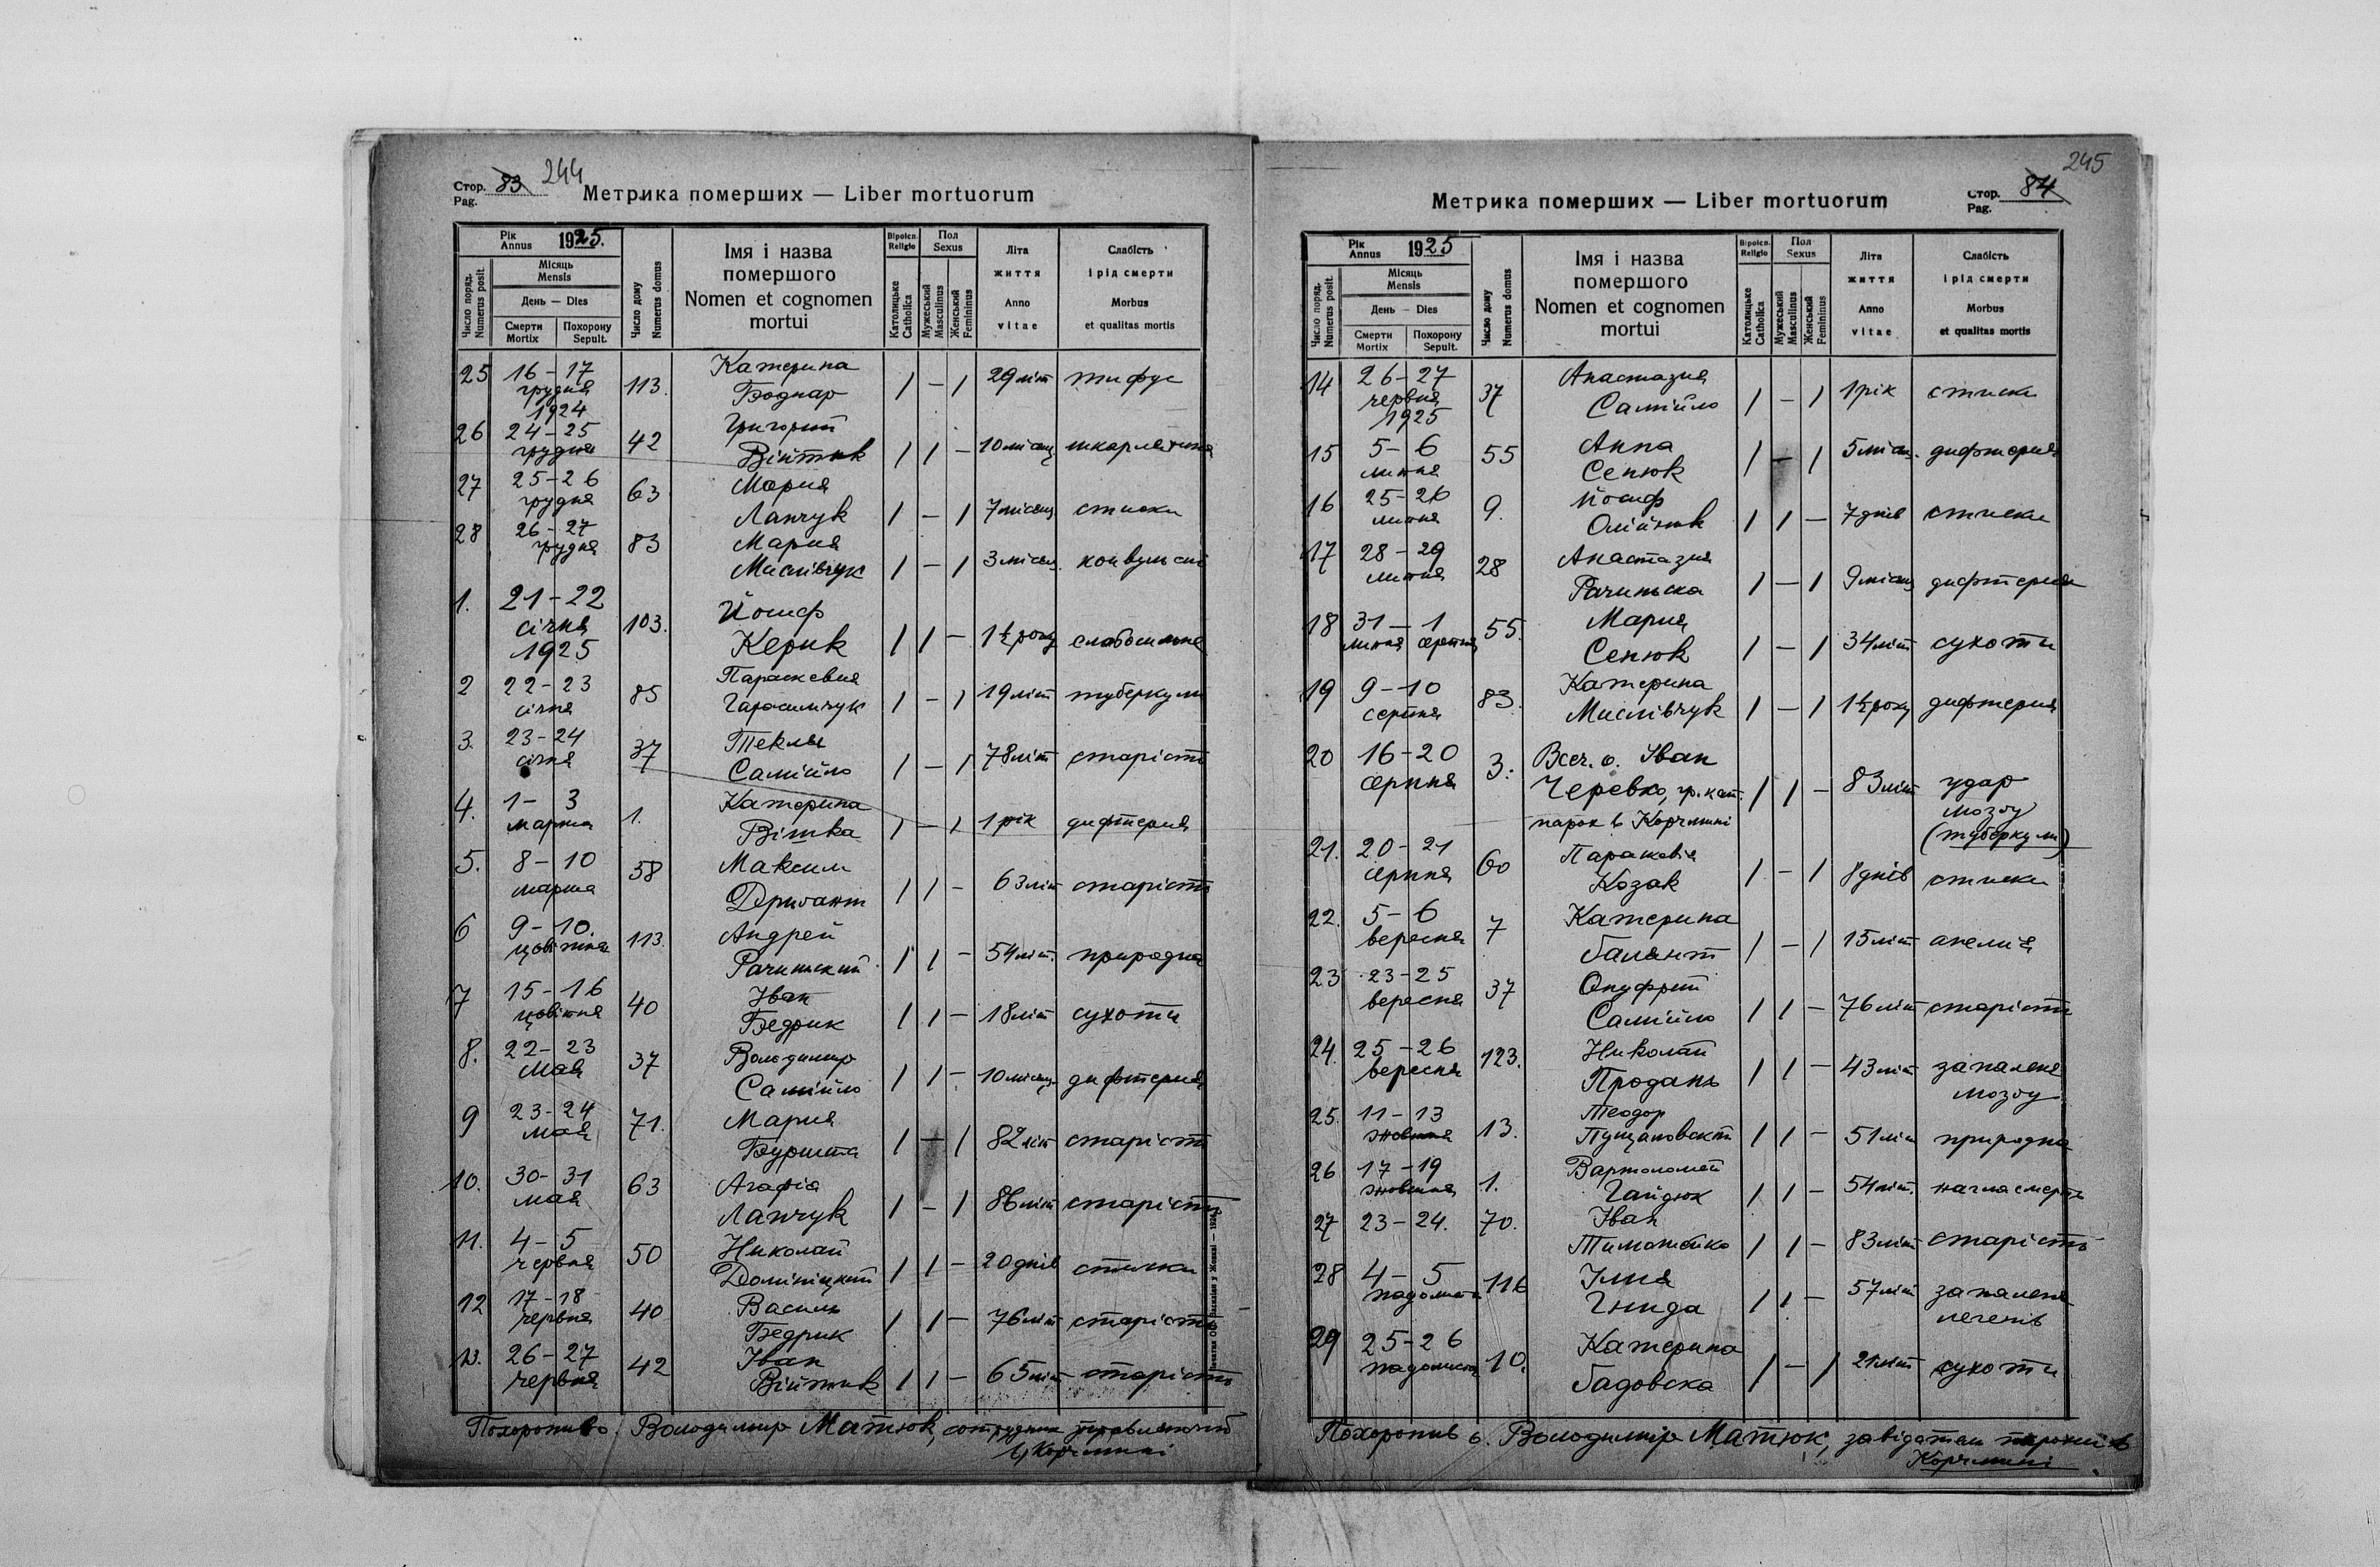 Стор. 83 244
Pag.
Метрика померших — Liber mortuorum
Рік Annus 1925.
Місяць Mensis
День — Dies
Смерти Mortix
Похорону Sepult.
Число поряд. Numerus posit.
Число дому Numerus domus
Імя і назва помершого
Nomen et cognomen mortui
Віроісп. Religio
Католицьке Catholica
Пол Sexus
Мужеський Masculinus
Женський Femininus
Літа життя
Anno vitae
Слабість і рід смерти
Morbus et qualitas mortis
25 16-17 грудня 1924 113. Катерина Боднар 1 — 1 29 літ тифус
26 24-25 грудня 42 Григорий Війтик 1 1 — 10 місяц шкарлятина
27 25-26 грудня 63 Мария Лапчук 1 — 1 7 місяц стиски
28 26-27 грудня 83 Мария Мислівчук 1 — 1 3 місяц. конвульсиї
1. 21-22 січня 1925 103. Йосиф Керик 1 1 — 1½ року
2 22-23 січня 85 Параскевия Гарасимчук 1 — 1 19 літ туберкули
3. 23-24 січня 37 Текля Самійло 1 — 1 78 літ старість
4. 1-3 марта 1. Катерина Вітка 1 — 1 1 рік дифтерия
5. 8-10 марта 38 Максим 1 1 — 63 літ старість
6 9-10. цвітня 113. Андрей Рачинский 1 1 — 54 літ. природна
7 15-16 цвітня 40 Іван Бедрик 1 1 — 18 літ сухоти
8. 22-23 мая 37 Володимир Самійло 1 1 — 10 місяц. дифтерия
9 23-24 мая 71. Мария 1 — 1 82 літ старість
10. 30-31 мая 63 Агафія Лапчук 1 — 1 86 літ старість
11. 4-5 червня 50 Николай Домініцкий 1 1 — 20 днів стиски
12 17-18 червня 40 Василь Бедрик 1 1 — 76 літ старість
13. 26-27 червня 42 Іван Війтик 1 1 — 65 літ старість
Похоронив о. Володимир Матюк, сотрудник
в Корчмині
245
Метрика померших — Liber mortuorum
Стор. 84
Pag.
Рік Annus 1925
Місяць Mensis
День — Dies
Смерти Mortix
Похорону Sepult.
Число поряд. Numerus posit.
Число дому Numerus domus
Імя і назва помершого
Nomen et cognomen mortui
Віроісп. Religio
Католицьке Catholica
Пол Sexus
Мужеський Masculinus
Женський Femininus
Літа життя
Anno vitae
Слабість і рід смерти
Morbus et qualitas mortis
14 26-27 червня 1925 37 Анастазия Самійло 1 — 1 1 рік стиски
15 5-6 липня 55 Анна Сенюк 1 — 1 5 місяц. дифтерия
16 25-26 липня 9. Йосиф Олійник 1 1 — 7 днів стиски
17 28-29 липня 28 Анастазия Рачиньска 1 — 1 9 місяц дифтерия
18 31-1 липня серпня 55. Мария Сенюк 1 — 1 34 літ сухоти
19 9-10 серпня 83. Катерина Мислівчук 1 — 1 1½ року дифтерия
20 16-20 серпня 3. Всеч. о. Іван Черевко, гр. кат. парох в Корчмині 1 1 — 83 літ удар мозгу (туберкули)
21. 20-21 серпня 60 Параскевія Козак 1 — 1 8 днів стиски
22. 5-6 вересня 7 Катерина Балант 1 — 1 15 літ анемія
23 23-25 вересня 37 Онуфрий Самійло 1 1 — 76 літ старість
24. 25-26 вересня 123. Николай Продань 1 1 — 43 літ запаленє мозгу
25. 11-13 жовтня 13. Теодор 1 1 — 51 літ природна
26 17-19 жовтня 1. Вартоломей Гайдюк 1 1 — 54 літ. нагла смерть
27 23-24. 70. Іван Тимотейко 1 1 — 83 літ старість
28 4-5 падолиста 116 Ілия Гнида 1 1 — 57 літ запаленє легенів
29 25-26 падолиста 10. Катерина Бадовска 1 — 1 21 літ сухоти
Похоронив о. Володимир Матюк, завідатель парохії в
Корчмині